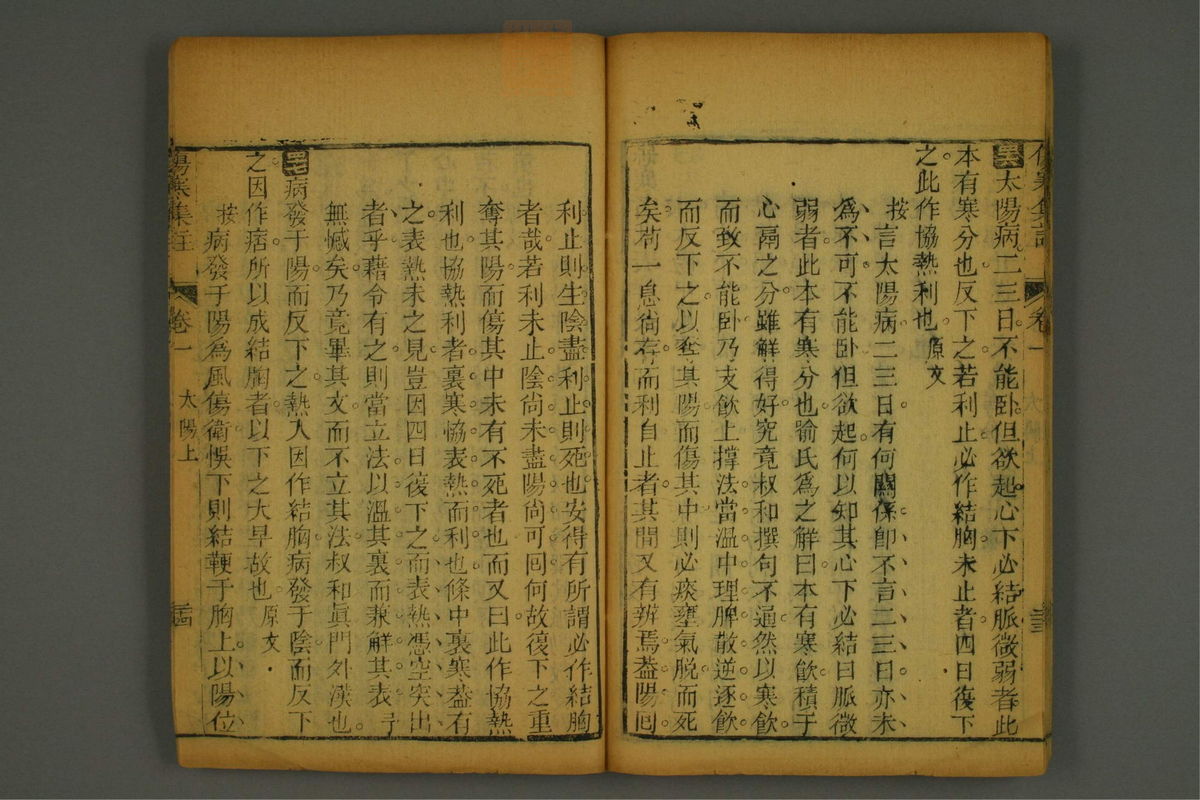 太陽病二三日不能卧但欲起心下必結脈微弱者此
本有寒分也反下之若利止必作結胸未止者四日復下
之此作協熱利也 原文
按言太陽病二三日有何關係卽不言二三日亦未
爲不可不能卧但欲起何以知其心下必結曰脈微
弱者此本有寒分也喻氏爲之解曰本有寒飲積于
心膈之分雖解得好究竟叔和撰句不通然以寒飲
而致不能卧乃支飲上撐法當溫中理脾散逆逐飲
而反下之以奪其陽而傷其中則必痰壅氣脫而死
矣苟一息尙存而利自止者其間又有辨焉葢陽囘
利止則生陰盡利止則死也安得有所謂必作結胸
者哉若利未止陰尙未盡陽尙可囘何故復下之重
奪其陽而傷其中未有不死者也而又曰此作協熱
利也協熱利者裏寒恊表熱而利也條中裏寒葢有
之表熱未之見豈因四日復下之而表熱憑空突出
者乎藉令有之則當立法以溫其裏而兼解其表于
無憾矣乃竟畢其文而不立其法叔和眞門外漢也
病發于陽而反下之熱入因作結胸病發于陰而反下
之因作痞所以成結胸者以下之大早故也 原文
按病發于陽爲風傷衛悞下則結鞕于胸上以陽位
傷寒集註 卷一 太陽上